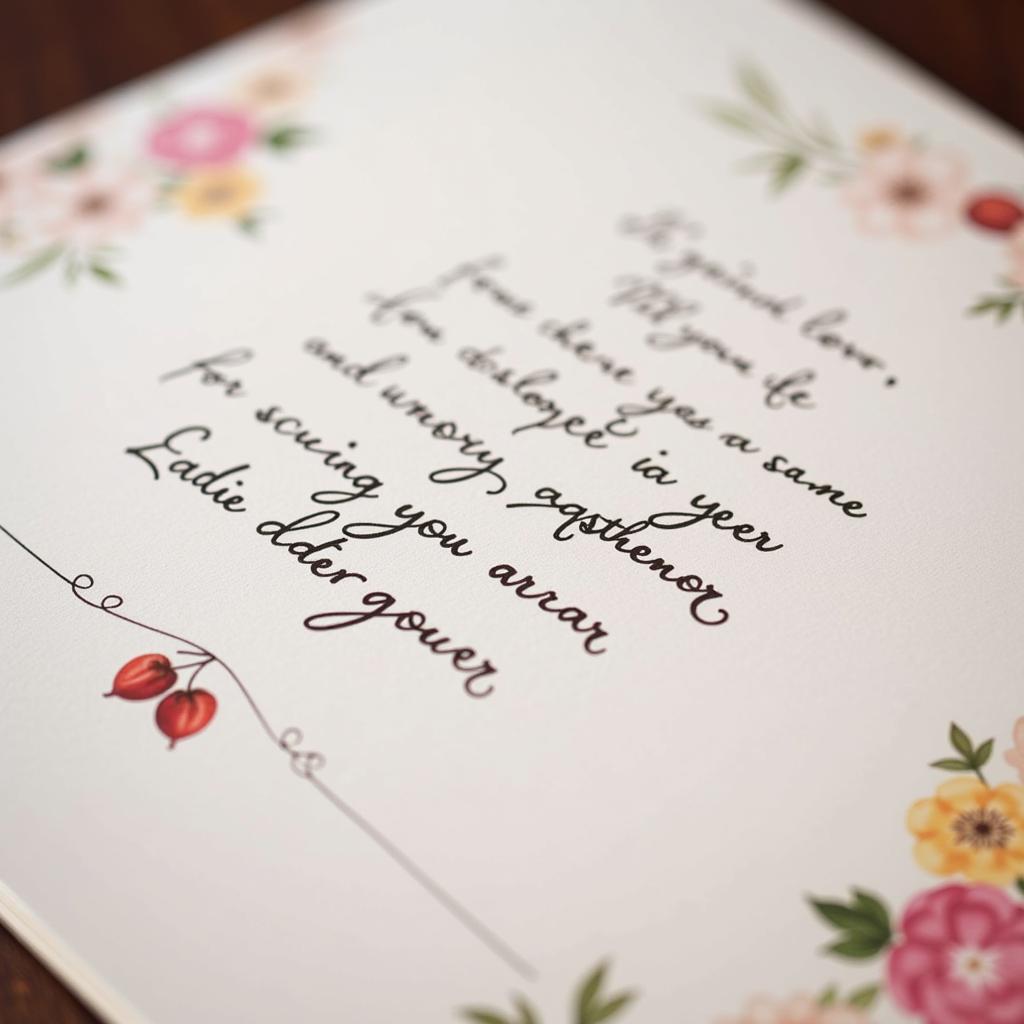 love,
Till your de
four chene yes a same
for dosloyee ia yeer
and unory, aqsthenor
for scuing you arrar
Eadie dder gouer